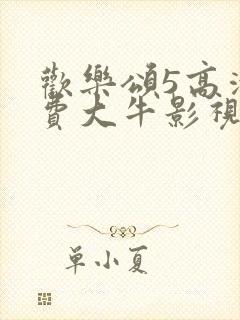 歡樂頌5高清
費大牛影視
單小夏